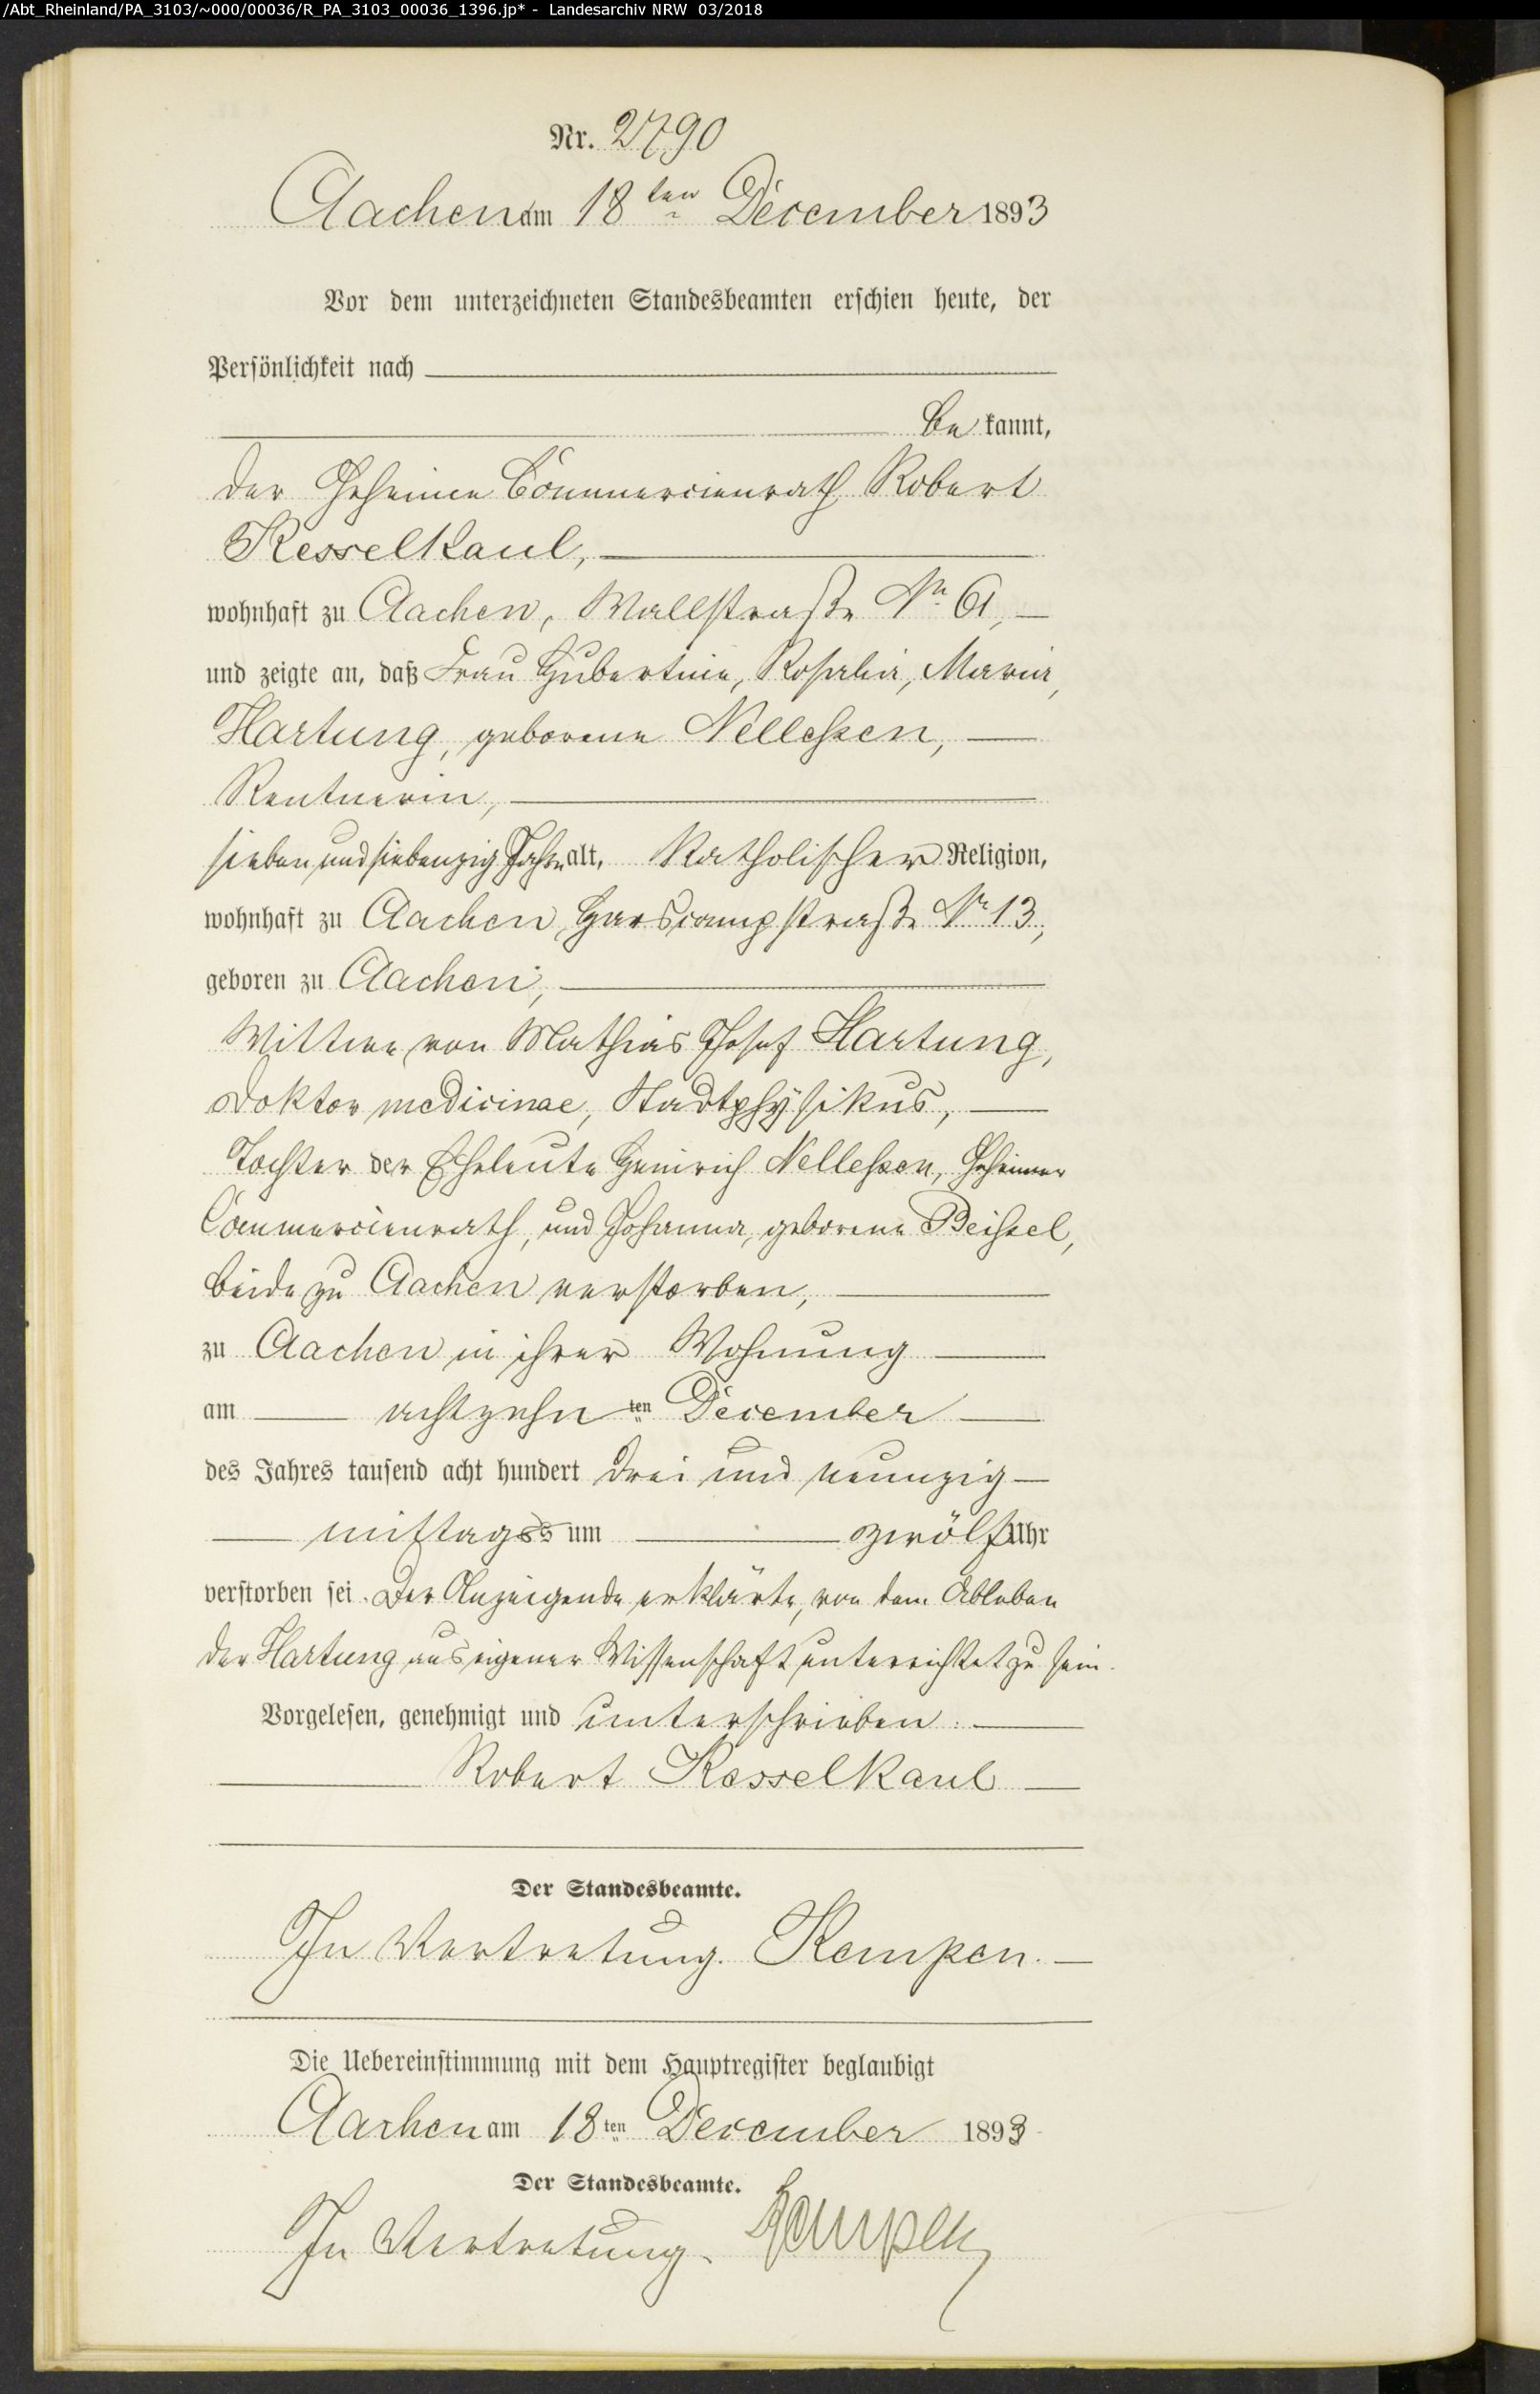 /Abt_Rheinland/PA_3103/~000/00036/R_PA_3103_00036_1396.jp* - Landesarchiv NRW 03/2018
Nr. 2790
Aachen am 18ten December 1893
Vor dem unterzeichneten Standesbeamten erschien heute, der
Persönlichkeit nach
be kannt,
der Geheime Commercienrath Robert
Kesselkaul,
wohnhaft zu Aachen, Wallstraße Nr 61,
und zeigte an, daß Frau Hubertine, Rosalia, Maria,
Hartung, geborene Nellessen,
Rentnerin,
sieben und siebenzig Jahre alt, katholischer Religion,
wohnhaft zu Aachen, Harscampstraße Nr 13,
geboren zu Aachen,
Wittwe von Mathias Josef Hartung,
Doktor medicinae, Stadtphysikus,
Tochter der Eheleute Heinrich Nellessen, Geheimer
Commercienrath, und Johanna, geborene Beissel,
beide zu Aachen verstorben,
zu Aachen in ihrer Wohnung
am achtzehn ten December
des Jahres tausend acht hundert drei und neunzig
mittags um zwölf Uhr
verstorben sei. Der Anzeigende erklärte, von dem Ableben
der Hartung aus eigener Wissenschaft unterrichtet zu sein.
Vorgelesen, genehmigt und unterschrieben.
Robert Kesselkaul
Der Standesbeamte.
In Vertretung. Kempen.
Die Uebereinstimmung mit dem Hauptregister beglaubigt
Aachen am 18ten December 1893
Der Standesbeamte.
In Vertretung. Kempen